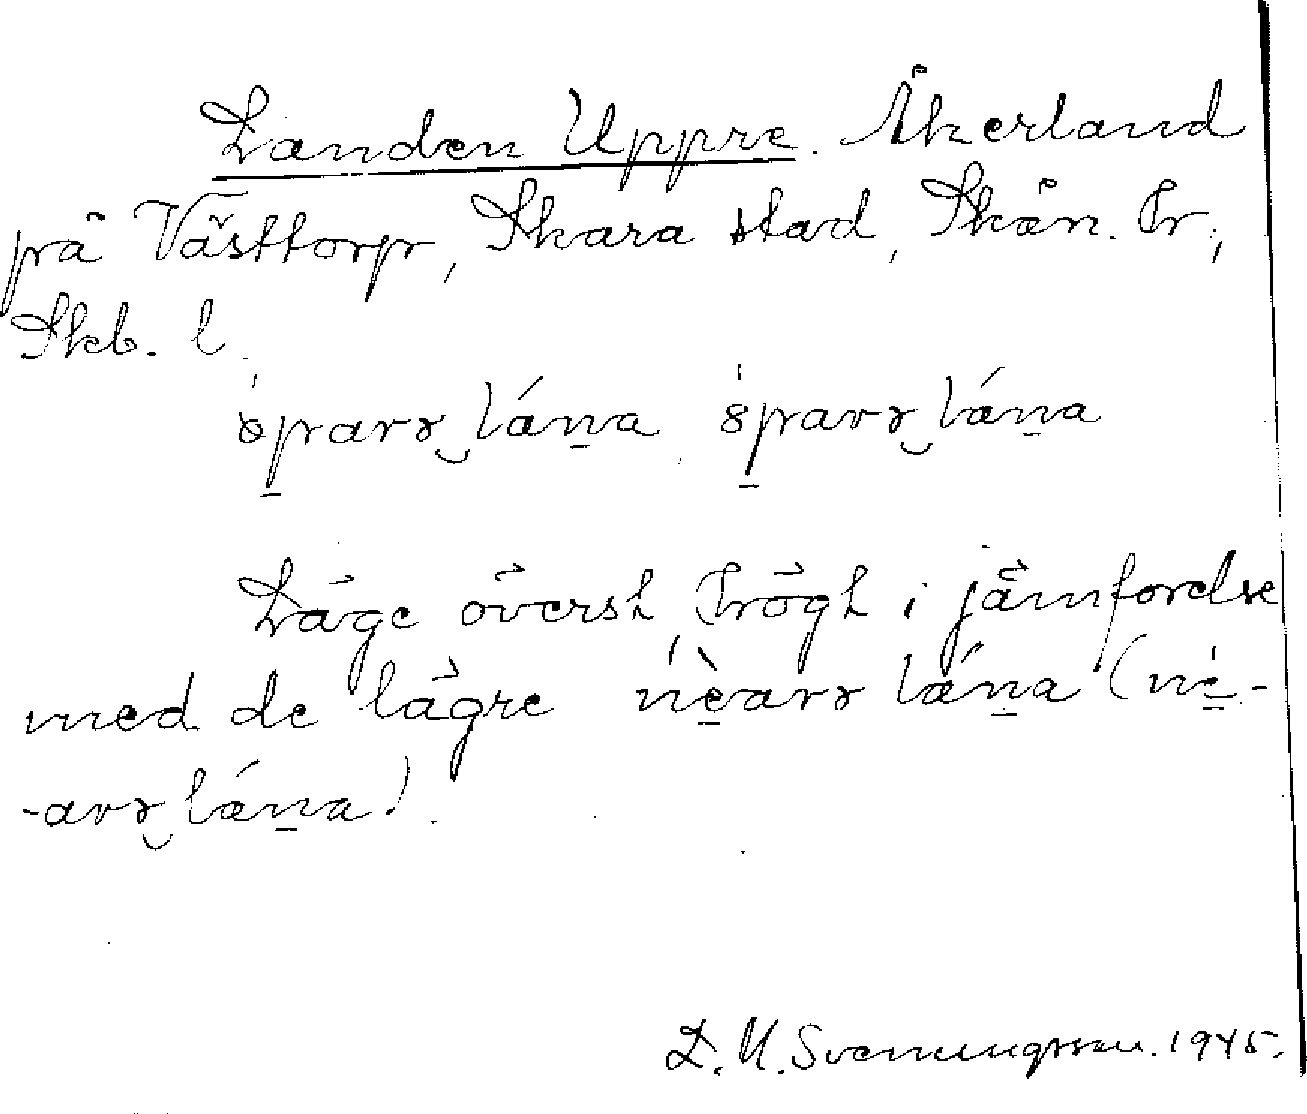 Landen Uppre. Åkerland
på Västtorp, Skara stad, Skån. Fr,
Skb. l.
láṉa láṉa
Läge överst, högt i jämförelse
med de lägre nèarɤ láṉa (nè-
-arɤ láṉa).
D. U. Svenungsson. 1945.